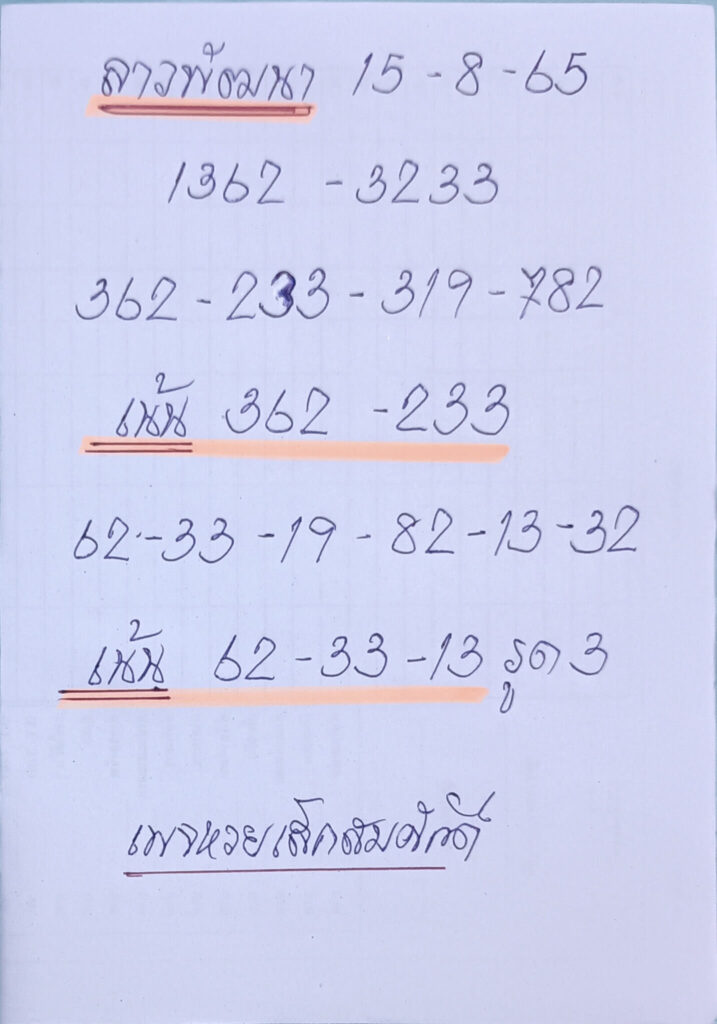 ลาวพัฒนา 15-8-65
1362 -3233
362-233-319-782
เน้น 362 -233
62-33-19-82-13-32
เน้น 62-33-13 รูด 3
เพจหวยเล็กสมศักดิ์